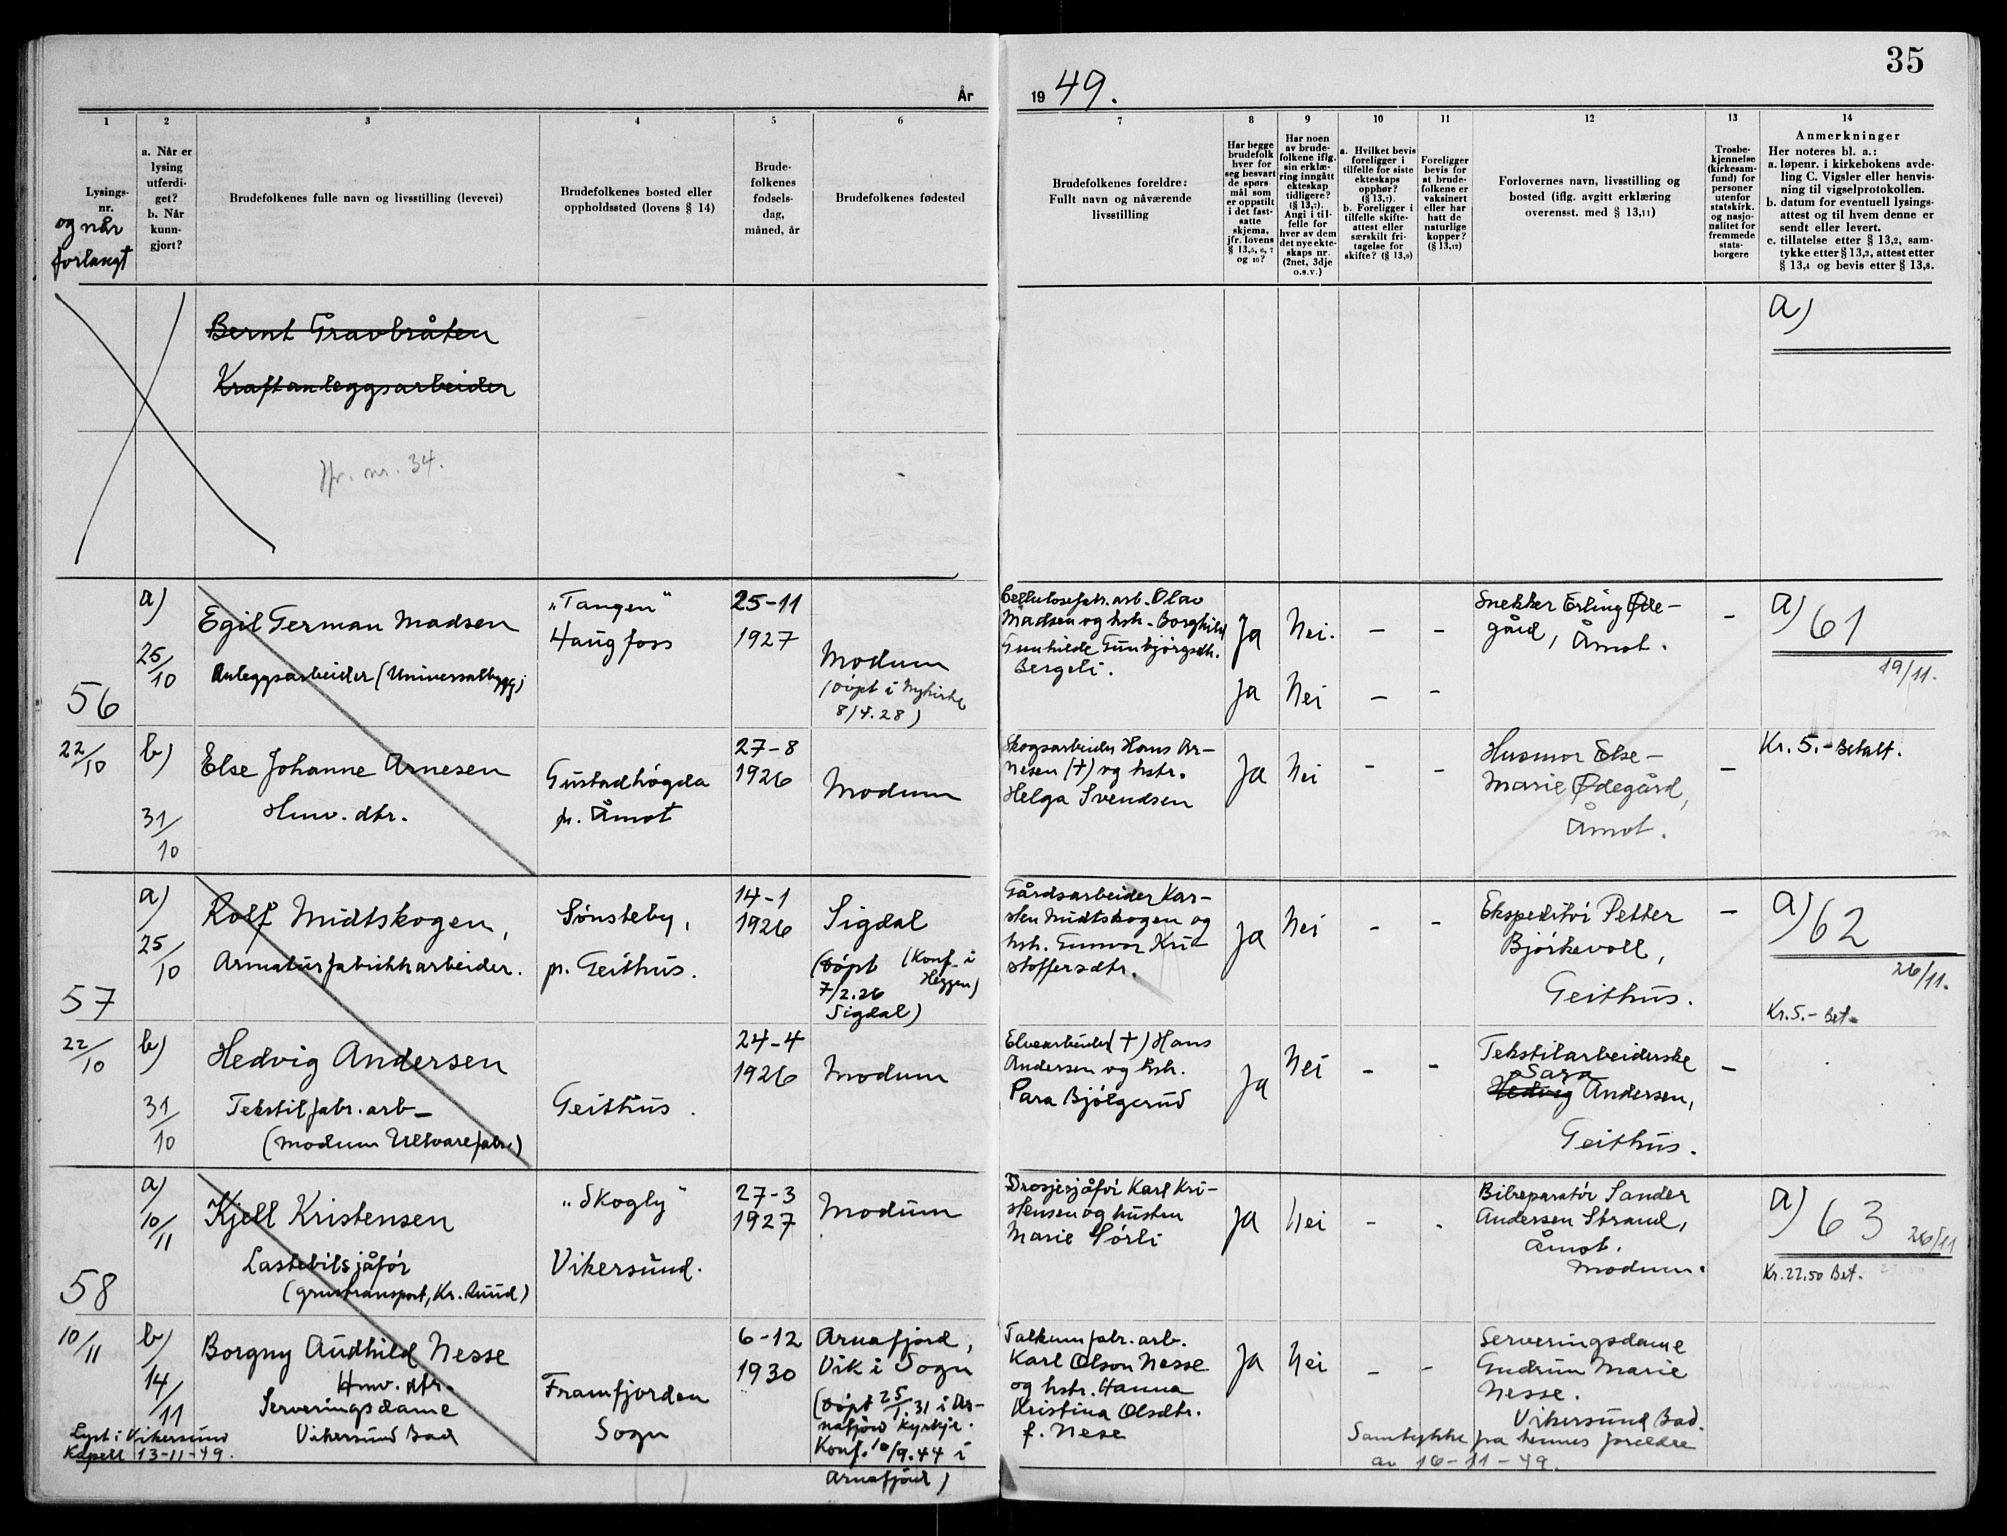 35
År
19 49.
1
2
3
4
5
6
7
8
9
10
11
12
13
14
Lysings-
nr.
og når
forlangt
a. Når er
lysing
utferdi-
get?
b. Når
kunn-
gjort?
Brudefolkenes fulle navn og livsstilling (levevei)
Brudefolkenes bosted eller
oppholdssted (lovens § 14)
Brude-
folkenes
fødsels-
dag,
måned, år
Brudefolkenes fødested
Brudefolkenes foreldre:
Fullt navn og nåværende
livsstilling
Har begge
brudefolk
hver for
seg besvart
de spørs-
mål som
er oppstilt
i det fast-
satte
skjema,
jfr. lovens
§ 13,5, 6, 7
og 10?
Har noen
av brude-
folkene iflg.
sin erklæ-
ring inngått
ekteskap
tidligere?
(§ 13,7).
Angi i til-
felle for
hver av dem
det nye ekte-
skaps nr.
(2net, 3dje
o.s.v.)
a. Hvilket bevis
foreligger i
tilfelle for siste
ekteskaps
opphør?
(§ 13,7).
b. Foreligger i
tilfelle skifte-
attest eller
særskilt fri-
tagelse for
skifte? (§ 13,9)
Foreligger
bevis for
at brude-
folkene er
vaksinert
eller har
hatt de
naturlige
kopper?
(§ 13,12)
Forlovernes navn, livsstilling og
bosted (iflg. avgitt erklæring
overensst. med § 13,11)
Trosbe-
kjennelse
(kirkesam-
fund) for
personer
utenfor
statskirk.
og nasjo-
nalitet for
fremmede
stats-
borgere
Anmerkninger
Her noteres bl. a.:
a. løpenr. i kirkebokens avde-
ling C. Vigsler eller henvis-
ning til vigselprotokollen.
b. datum for eventuell lysings-
attest og til hvem denne er
sendt eller levert.
c. tillatelse etter § 13,2, sam-
tykke etter § 13,3, attest etter
§ 13,4 og bevis etter § 13,8.
Bernt Gravbråten
Kraftanleggsarbeider
Jfr. nr. 34.
a)
56
22/10
a)
25/10
Egil German Madsen
Anleggsarbeider (Universalbygg)
"Tangen"
Haugfoss
25-11
1927
Modum
(døpt i Nykirke
8/4.28)
Cellulosefabr.arb. Olav
Madsen og hstr. Borghild
Gunhilde Gunbjørgsdtr.
Bergeli.
Ja Nei. - -
Ja Nei - -
Snekker Erling Øde-
gård, Åmot.
-
a) 61
19/11.
b)
31/10
Else Johanne Arnesen
Hmv. dtr.
Gustadhøgda
pr. Åmot
27-8
1926
Modum
Skogsarbeider Hans Ar-
nesen (+) og hstr.
Helga Svendsen
Ja Nei - -
Husmor Else-
Marie Ødegård,
Åmot.
-
Kr. 5.- Betalt.
57
22/10
a)
25/10
Rolf Midtskogen,
Armaturfabrikkarbeider.
Sønsteby,
pr. Geithus.
14-1
1926
Sigdal
(døpt (Konf. i
7/2.26 Heggen)
Sigdal)
Gårdsarbeider Kar-
sten Midtskogen og
hstr. Gunvor Kri-
stoffersdtr.
Ja Nei - -
Ekspeditør Petter
Bjørkevoll,
Geithus.
-
a) 62
26/11.
Kr. 5.- Bet.
b)
31/10
Hedvig Andersen
Tekstilfabr.arb.
(Modum Ullvarefabr.)
Geithus.
24-4
1926
Modum
Elvearbeider (+) Hans
Andersen og hstr.
Para Bjølgerud
Ja Nei - -
Tekstilarbeiderske
Sara
Hedvig Andersen,
Geithus.
-
58
10/11
a)
10/11
Kjell Kristensen
Lastebilsjåfør
(grustransport, Kr. Ruud)
"Skogly"
Vikersund.
27-3
1927
Modum
Drosjesjåfør Karl Kri-
stensen og hustru
Marie Sørli
Ja Nei - -
Bilreparatør Sander
Andersen Strand,
Åmot.
Modum.
a) 63 26/11
Kr. 22.50 Bet.
b)
14/11
Borgny Audhild Nesse
Hmv. dtr.
Serveringsdame
Vikersund Bad
Lyst i Vikersund
Kapell 13-11-49.
Framfjorden
Sogn
6-12
1930
Arnafjord,
Vik i Sogn
(døpt 25/1.31 i Ar-
nafjord kyrkje.
Konf. 10/9.44 i
Arnafjord)
Talkumfabr. arb.
Karl Olson Nesse
og hstr. Hanna
Kristina Olsdtr.
f. Nese
Ja Nei - -
Serveringsdame
Gudrun Marie
Nesse.
Vikersund Bad.
Samtykke fra hennes foreldre
av 16-11-49.